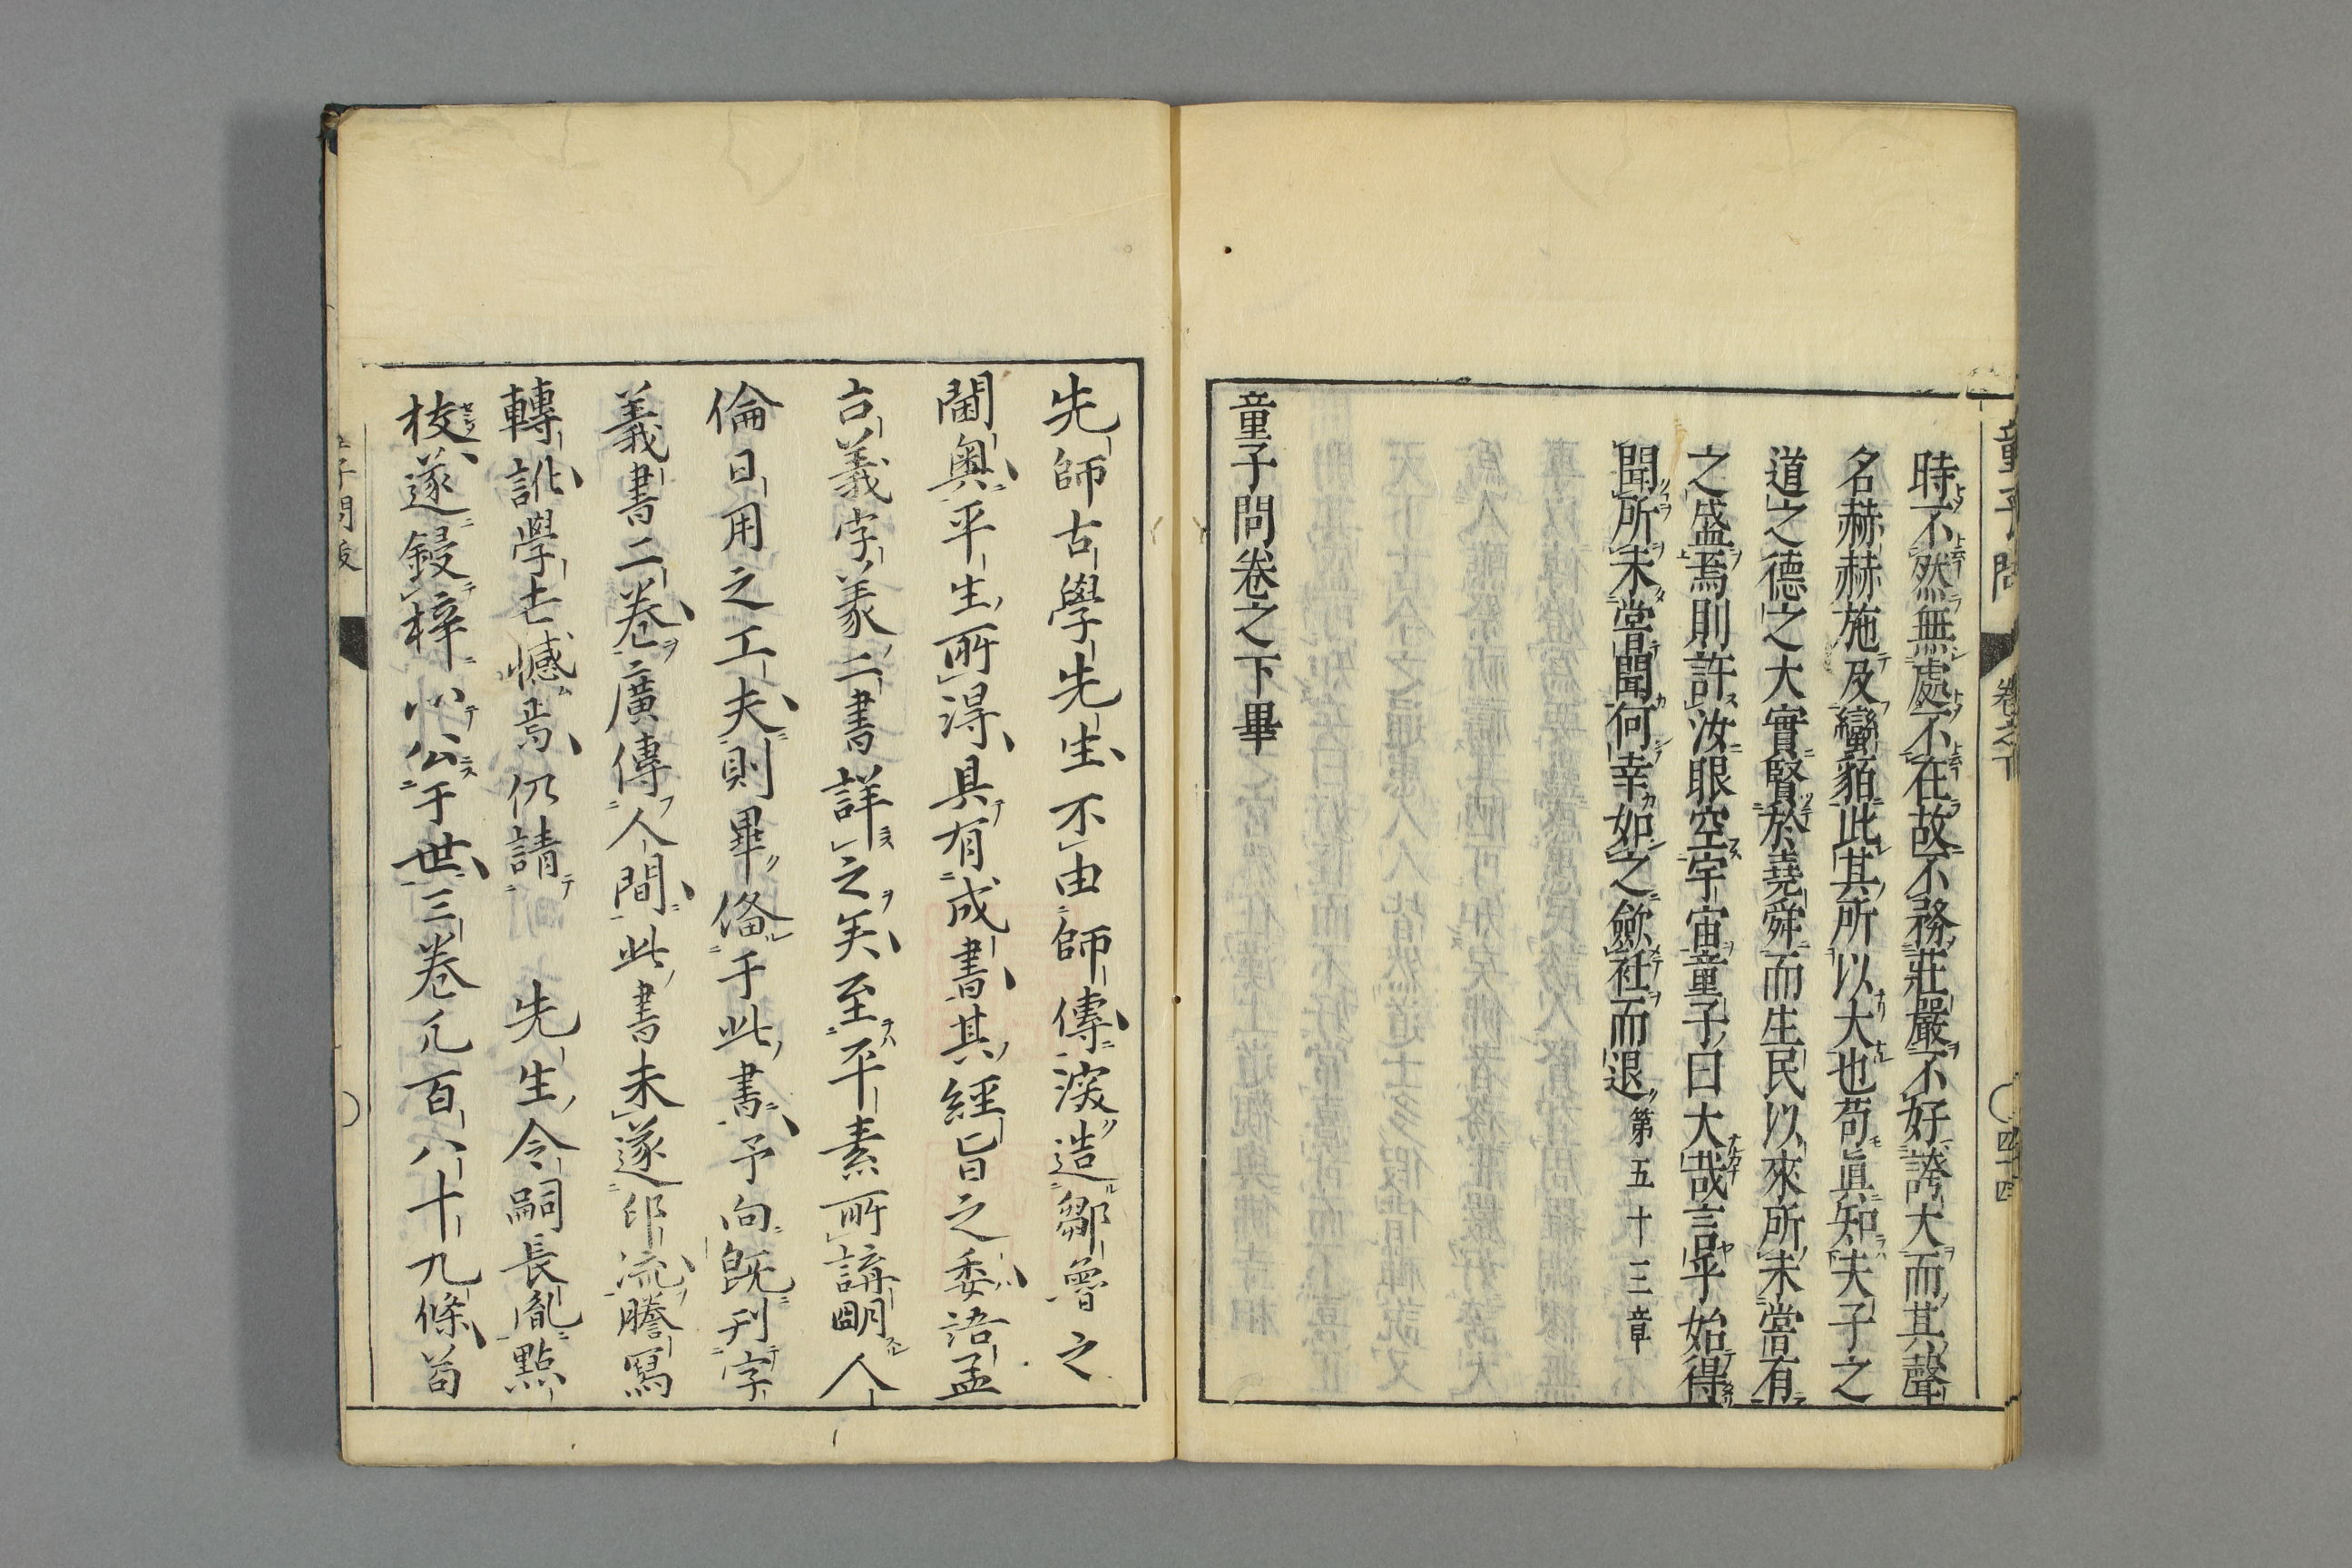 童子問
卷之下
四十四
時不然無處不在故不務莊嚴不好誇大而其聲
名赫赫施及蠻貊此其所以大也苟眞知夫子之
道之德之大實賢於堯舜而生民以來所未嘗有
之盛焉則許汝眼空宇宙童子曰大哉言乎始得
聞所未嘗聞何幸如之歛衽而退第五十三章
童子問卷之下畢
先師古學先生不由師傳深造鄒魯之
閫奧平生所得具有成書其經旨之委語孟
古義字義二書詳之矣至平素所講明人
倫日用之工夫則畢俻于此書予向既刊字
義書二卷廣傳人間此書未遂印流謄寫
轉訛學士憾焉仍請 先生令嗣長胤點
校遂鋟梓以公于世三卷凡百八十九條首
童子問跋